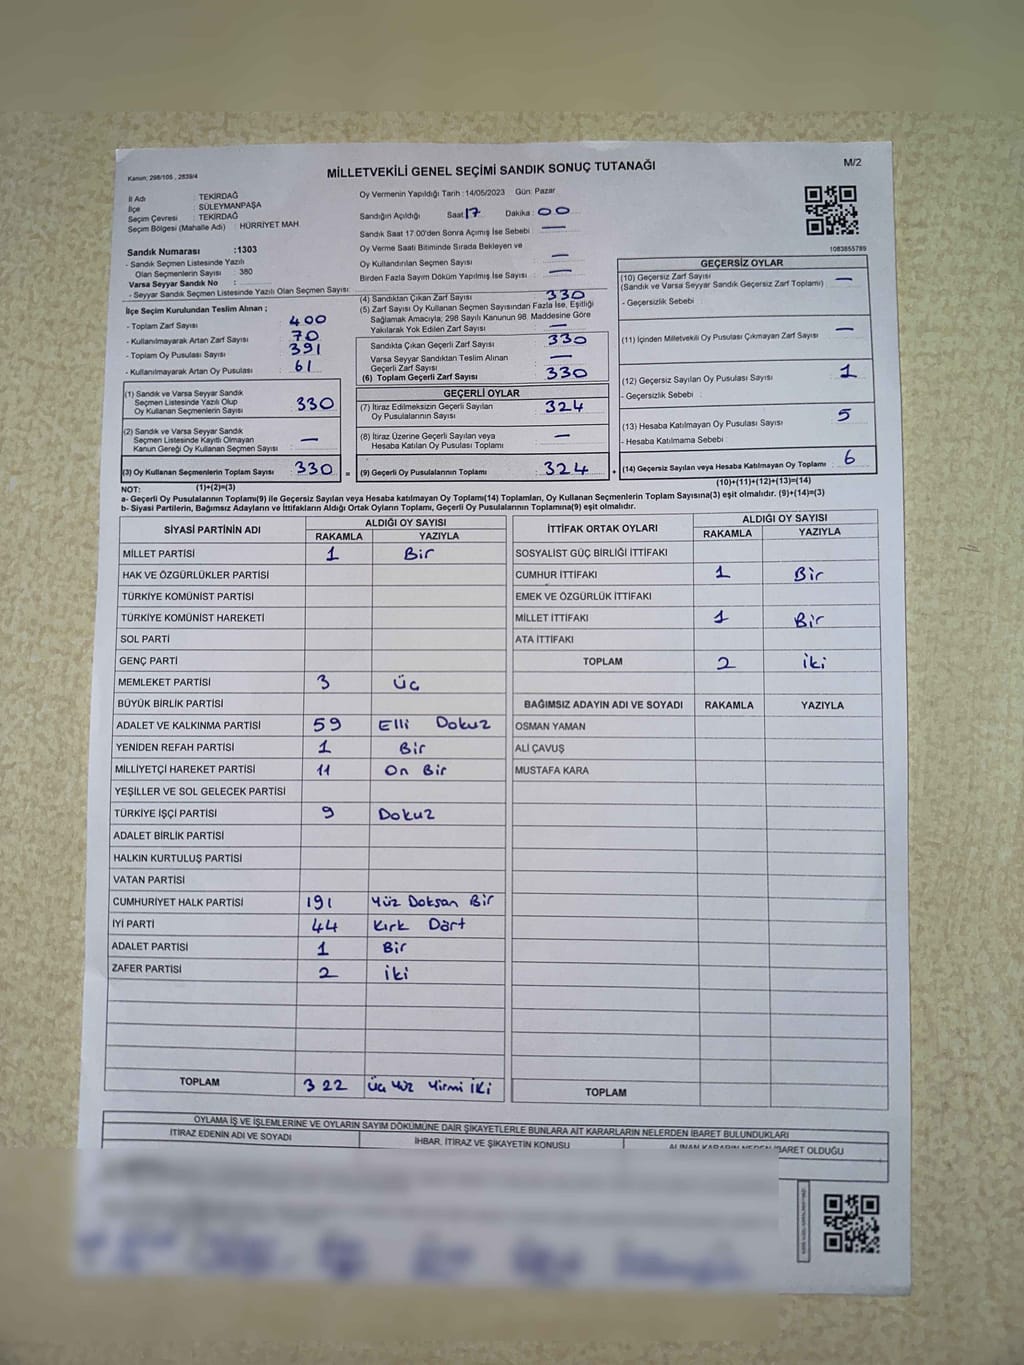 Kanun; 298/105 , 2839/4
MİLLETVEKİLİ GENEL SEÇİMİ SANDIK SONUÇ TUTANAĞI
M/2
İl Adı : TEKİRDAĞ
İlçe : SÜLEYMANPAŞA
Seçim Çevresi : TEKİRDAĞ
Seçim Bölgesi (Mahalle Adı) : HÜRRİYET MAH.
Sandık Numarası :1303
- Sandık Seçmen Listesinde Yazılı
Olan Seçmenlerin Sayısı : 380
Varsa Seyyar Sandık No :
- Seyyar Sandık Seçmen Listesinde Yazılı Olan Seçmen Sayısı:
İlçe Seçim Kurulundan Teslim Alınan ;
- Toplam Zarf Sayısı : 400
- Kullanılmayarak Artan Zarf Sayısı : 70
- Toplam Oy Pusulası Sayısı : 391
- Kullanılmayarak Artan Oy Pusulası : 61
(1) Sandık ve Varsa Seyyar Sandık
Seçmen Listesinde Yazılı Olup
Oy Kullanan Seçmenlerin Sayısı : 330
(2) Sandık ve Varsa Seyyar Sandık
Seçmen Listesinde Kayıtlı Olmayan
Kanun Gereği Oy Kullanan Seçmen Sayısı : —
(3) Oy Kullanan Seçmenlerin Toplam Sayısı : 330 =
(1)+(2)=(3)
Oy Vermenin Yapıldığı Tarih :14/05/2023 Gün: Pazar
Sandığın Açıldığı Saat:17 Dakika : 00
Sandık Saat 17.00'den Sonra Açılmış İse Sebebi : —
Oy Verme Saati Bitiminde Sırada Bekleyen ve
Oy Kullandırılan Seçmen Sayısı : —
Birden Fazla Sayım Döküm Yapılmış İse Sayısı : —
(4) Sandıktan Çıkan Zarf Sayısı : 330
(5) Zarf Sayısı Oy Kullanan Seçmen Sayısından Fazla İse, Eşitliği
Sağlamak Amacıyla; 298 Sayılı Kanunun 98. Maddesine Göre
Yakılarak Yok Edilen Zarf Sayısı : —
Sandıkta Çıkan Geçerli Zarf Sayısı : 330
Varsa Seyyar Sandıktan Teslim Alınan
Geçerli Zarf Sayısı : —
(6) Toplam Geçerli Zarf Sayısı : 330
GEÇERLİ OYLAR
(7) İtiraz Edilmeksizin Geçerli Sayılan
Oy Pusulalarının Sayısı : 324
(8) İtiraz Üzerine Geçerli Sayılan veya
Hesaba Katılan Oy Pusulası Toplamı : —
(9) Geçerli Oy Pusulalarının Toplamı : 324 +
1083855789
GEÇERSİZ OYLAR
(10) Geçersiz Zarf Sayısı : —
(Sandık ve Varsa Seyyar Sandık Geçersiz Zarf Toplamı)
- Geçersizlik Sebebi :
(11) İçinden Milletvekili Oy Pusulası Çıkmayan Zarf Sayısı : —
(12) Geçersiz Sayılan Oy Pusulası Sayısı : 1
- Geçersizlik Sebebi :
(13) Hesaba Katılmayan Oy Pusulası Sayısı : 5
- Hesaba Katılmama Sebebi :
(14) Geçersiz Sayılan veya Hesaba Katılmayan Oy Toplamı : 6
(10)+(11)+(12)+(13)=(14)
NOT:
a- Geçerli Oy Pusulalarının Toplamı(9) ile Geçersiz Sayılan veya Hesaba katılmayan Oy Toplamı(14) Toplamları, Oy Kullanan Seçmenlerin Toplam Sayısına(3) eşit olmalıdır. (9)+(14)=(3)
b- Siyasi Partilerin, Bağımsız Adayların ve İttifakların Aldığı Ortak Oyların Toplamı, Geçerli Oy Pusulalarının Toplamına(9) eşit olmalıdır.
SİYASİ PARTİNİN ADI ALDIĞI OY SAYISI
RAKAMLA YAZIYLA
MİLLET PARTİSİ 1 Bir
HAK VE ÖZGÜRLÜKLER PARTİSİ
TÜRKİYE KOMÜNİST PARTİSİ
TÜRKİYE KOMÜNİST HAREKETİ
SOL PARTİ
GENÇ PARTİ
MEMLEKET PARTİSİ 3 Üç
BÜYÜK BİRLİK PARTİSİ
ADALET VE KALKINMA PARTİSİ 59 Elli Dokuz
YENİDEN REFAH PARTİSİ 1 Bir
MİLLİYETÇİ HAREKET PARTİSİ 11 On Bir
YEŞİLLER VE SOL GELECEK PARTİSİ
TÜRKİYE İŞÇİ PARTİSİ 9 Dokuz
ADALET BİRLİK PARTİSİ
HALKIN KURTULUŞ PARTİSİ
VATAN PARTİSİ
CUMHURİYET HALK PARTİSİ 191 Yüz Doksan Bir
İYİ PARTİ 44 Kırk Dört
ADALET PARTİSİ 1 Bir
ZAFER PARTİSİ 2 İki
TOPLAM 322 Üç Yüz Yirmi İki
İTTİFAK ORTAK OYLARI ALDIĞI OY SAYISI
RAKAMLA YAZIYLA
SOSYALİST GÜÇ BİRLİĞİ İTTİFAKI
CUMHUR İTTİFAKI 1 Bir
EMEK VE ÖZGÜRLÜK İTTİFAKI
MİLLET İTTİFAKI 1 Bir
ATA İTTİFAKI
TOPLAM 2 İki
BAĞIMSIZ ADAYIN ADI VE SOYADI RAKAMLA YAZIYLA
OSMAN YAMAN
ALİ ÇAVUŞ
MUSTAFA KARA
TOPLAM
OYLAMA İŞ VE İŞLEMLERİNE VE OYLARIN SAYIM DÖKÜMÜNE DAİR ŞİKAYETLERLE BUNLARA AİT KARARLARIN NELERDEN İBARET BULUNDUKLARI
İTİRAZ EDENİN ADI VE SOYADI İHBAR, İTİRAZ VE ŞİKAYETİN KONUSU ALINAN KARARIN NEDEN İBARET OLDUĞU